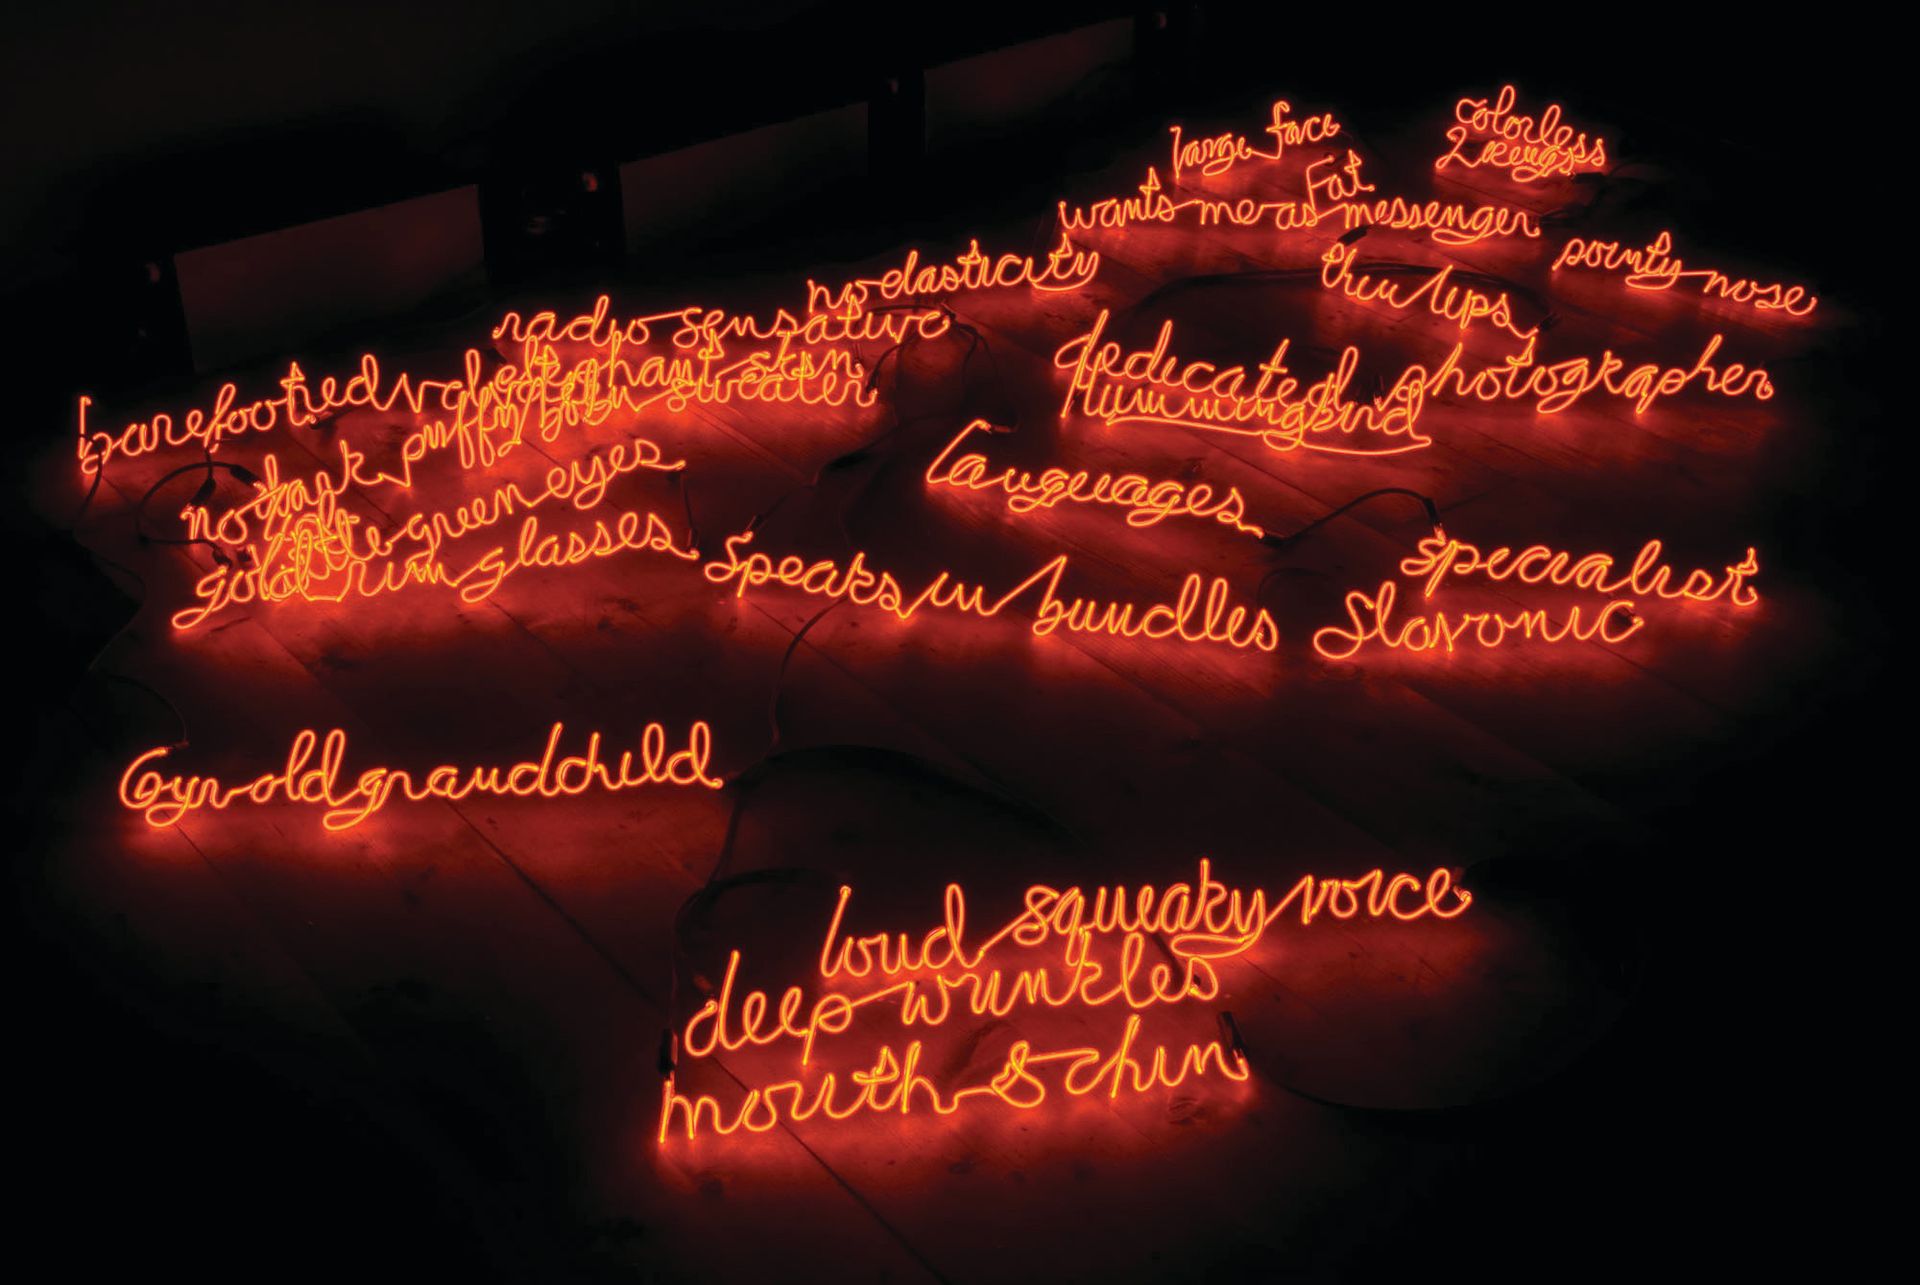 large face
colorless
Fat
wants me as messenger
pointy nose
no elasticity
thin lips
radio sensative
dedicated photographer
elephant skin
barefooted
hummingbird
puffy sweater
languages
no
green eyes
specialist
gold rim glasses
Speaks in bundles
Slavonic
6 yr old grandchild
loud squeaky voice
deep wrinkles
mouth & chin